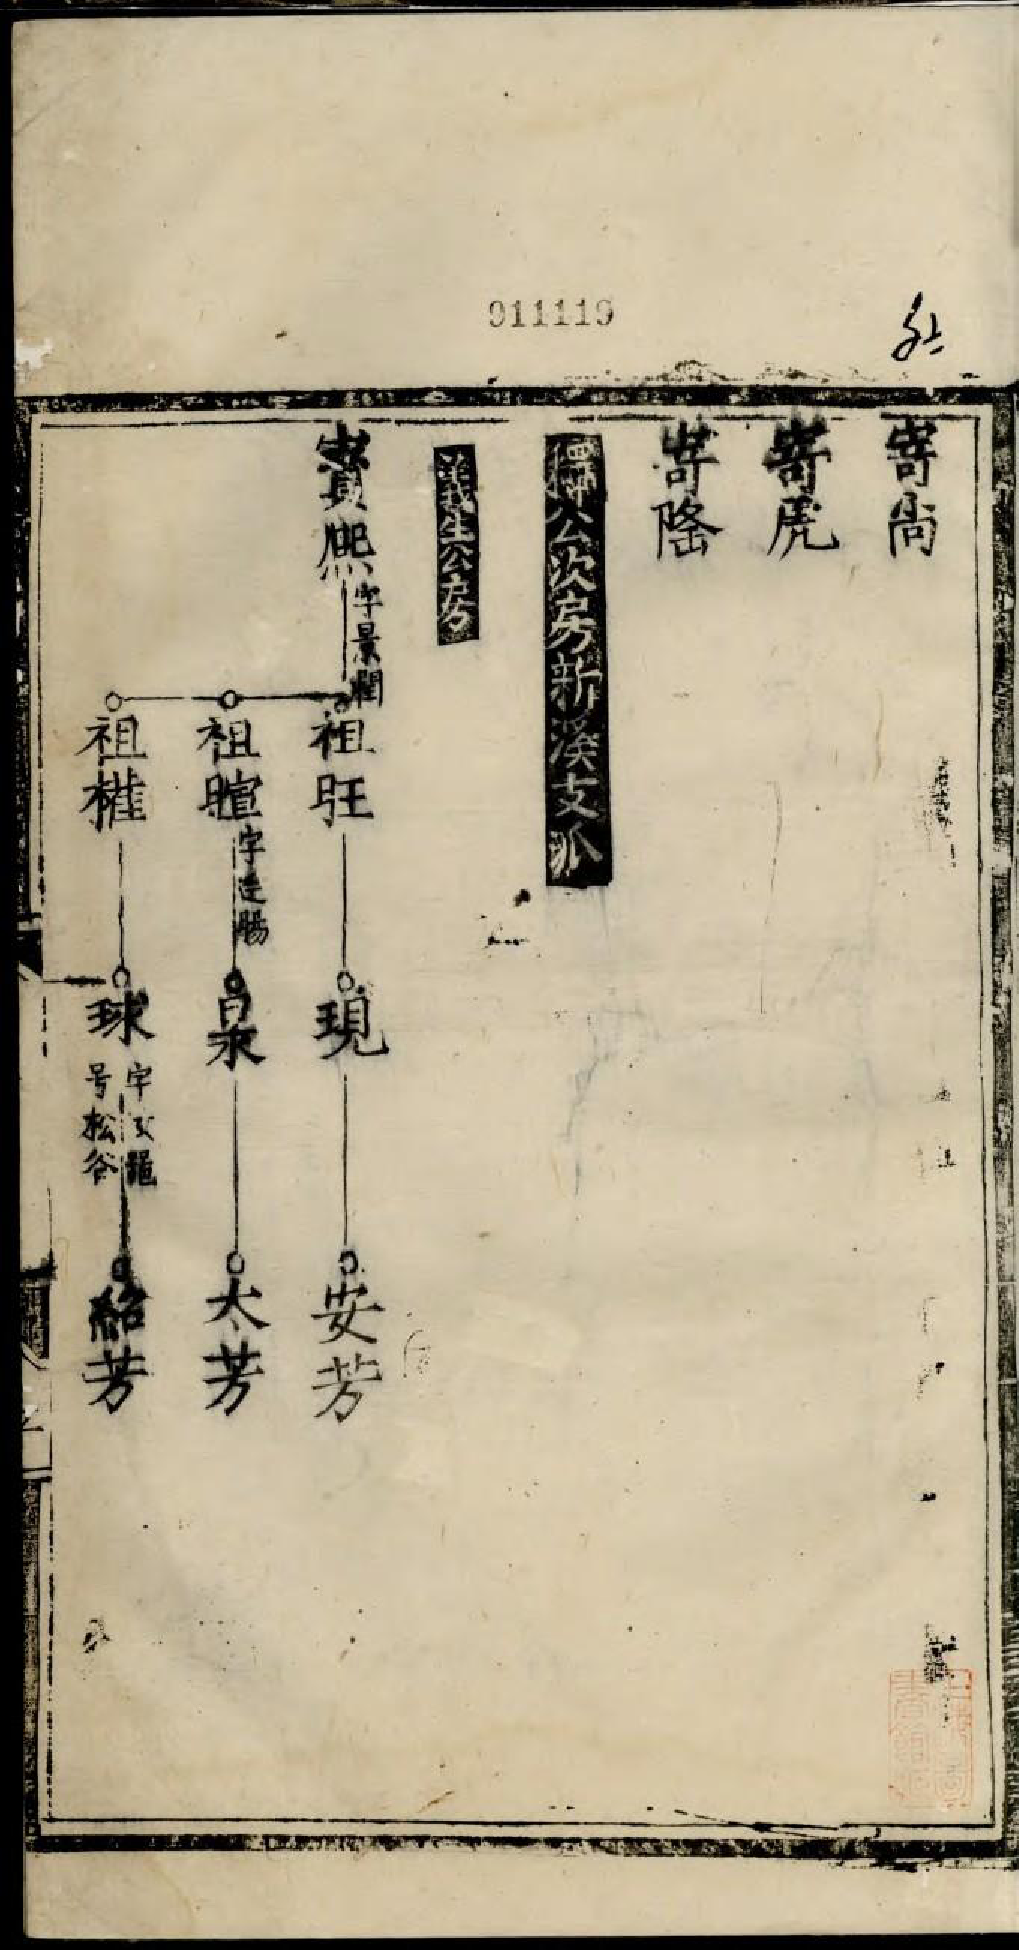 911119
寄尚
寄虎
寄隆
公次房新溪支派
義生公房
賨熙 字景潤
祖旺
現
安芳
祖暄 字廷腸
泉
太芳
祖權
球 字 号松谷
紹芳